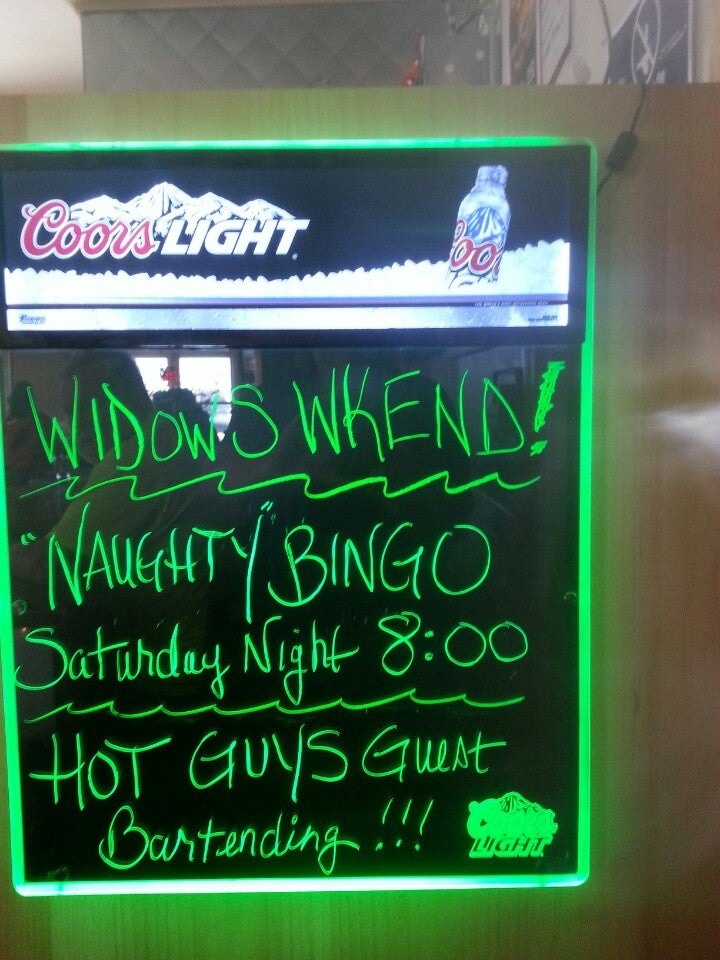 Coors LIGHT
Coo
WIDOWS WKEND!
"NAUGHTY" BINGO
Saturday Night 8:00
HOT GUYS Guest
Bartending !!!
Coors
LIGHT